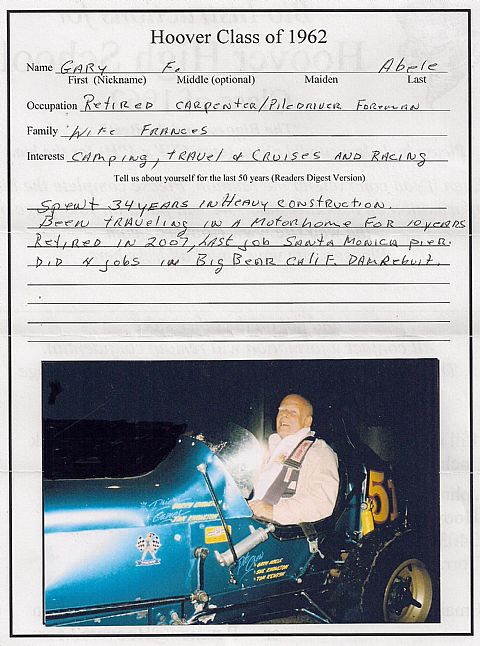 Hoover Class of 1962
Name GARY F. Abele
First (Nickname) Middle (optional) Maiden Last
Occupation Retired CARPENTER/PILEDRIVER FOREMAN
Family WIFE FRANCES
Interests CAMPING, TRAVEL & CRUISES AND RACING
Tell us about yourself for the last 50 years (Readers Digest Version)
SPENT 34 YEARS IN HEAVY CONSTRUCTION.
BEEN TRAVELING IN A MOTORHOME FOR 10 YEARS
RETIRED IN 2007, LAST JOB SANTA MONICA PIER.
DID 4 JOBS IN BIG BEAR CALIF. DAM REBUIT.
51
Pit Crew
GARY ABELE